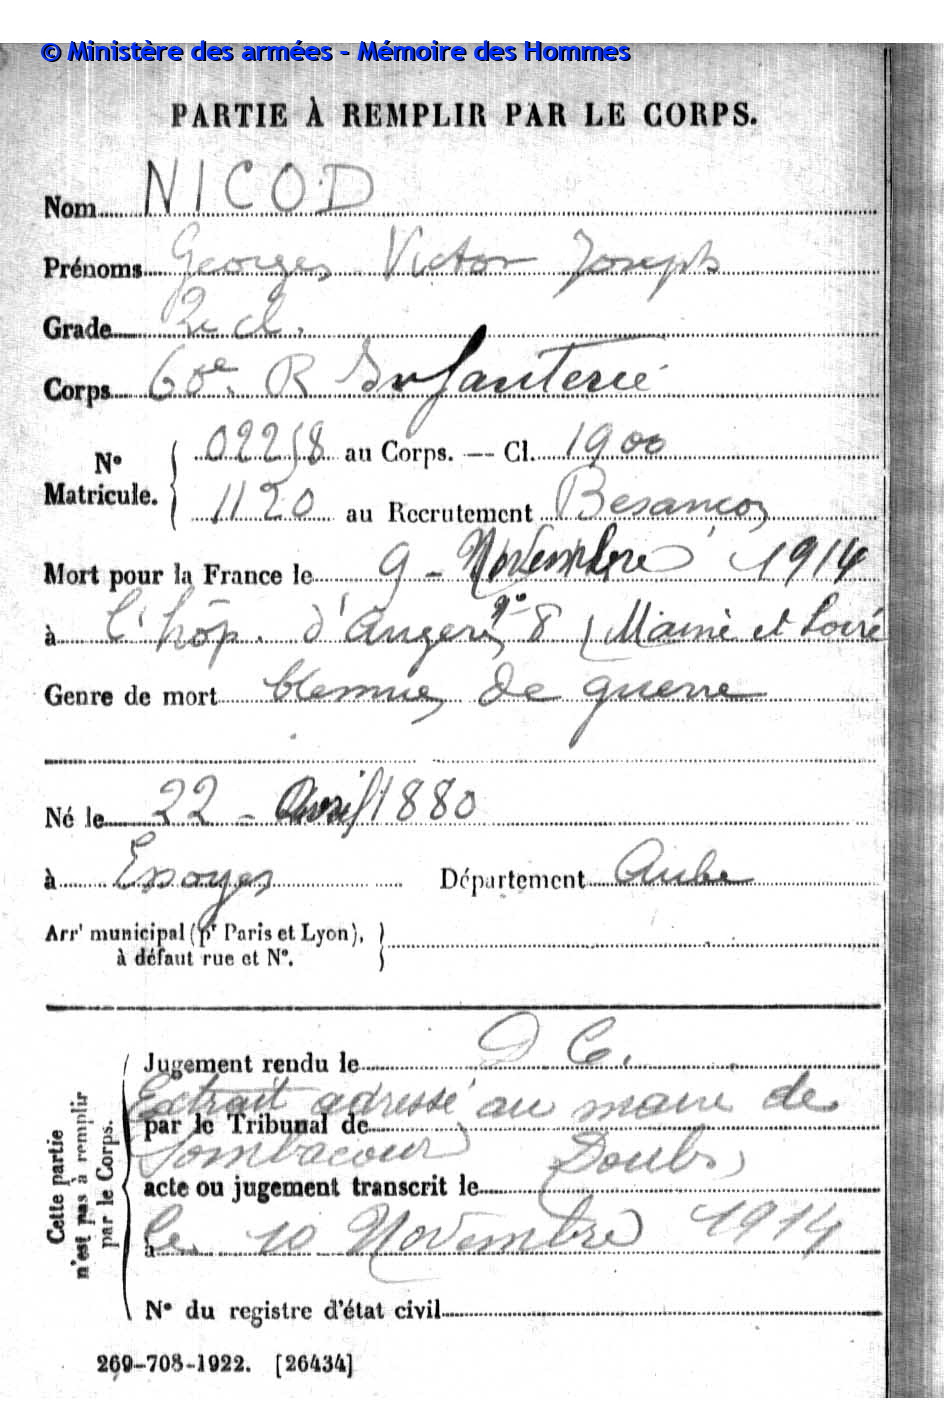 © Ministère des armées - Mémoire des Hommes
PARTIE À REMPLIR PAR LE CORPS.
Nom NICOD
Prénoms Georges Victor Joseph
Grade 2e cl.
Corps 60e. R Infanterie
N° Matricule. 02258 au Corps. — Cl. 1900
1120 au Recrutement Besançon
Mort pour la France le 9 - Novembre 1914
à l'hôp. d'Angers n° 8 (Maine et Loire
Genre de mort blessures de guerre
Né le 22 - Avril 1880
à Essoyes Département Aube
Arrt municipal (pr Paris et Lyon),
à défaut rue et N°.
Cette partie n'est pas à remplir par le Corps.
Jugement rendu le D C.
Extrait adressé au maire de
par le Tribunal de
Sombacour Doubs
acte ou jugement transcrit le
à le 10 Novembre 1914
N° du registre d'état civil
269-708-1922. [26434]